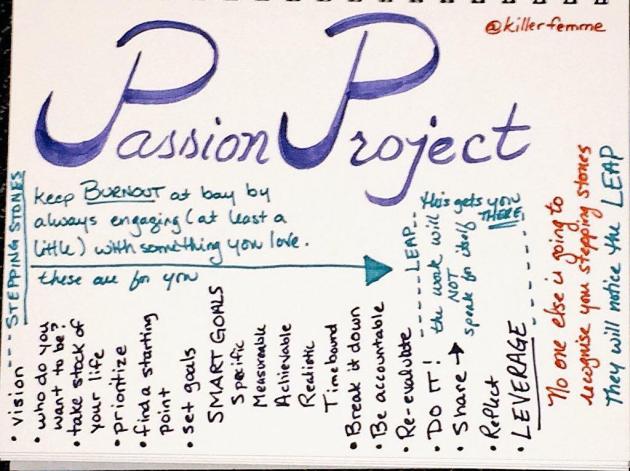 @killerfemme
Passion Project
STEPPING STONES
keep BURNOUT at bay by
always engaging (at least a
little) with something you love.
these are for you
LEAP
this gets you
THERE!
the work will
NOT
speak for itself
• vision
• who do you
want to be?
• take stock of
your life
• prioritize
• find a starting
point
• set goals
SMART GOALS
Specific
Measureable
Achievable
Realistic
Timebound
• Break it down
• Be accountable
• Re-evaluate
• DO IT!
• Share →
• Reflect
• LEVERAGE
No one else is going to
recognise your stepping stones
They will notice the LEAP